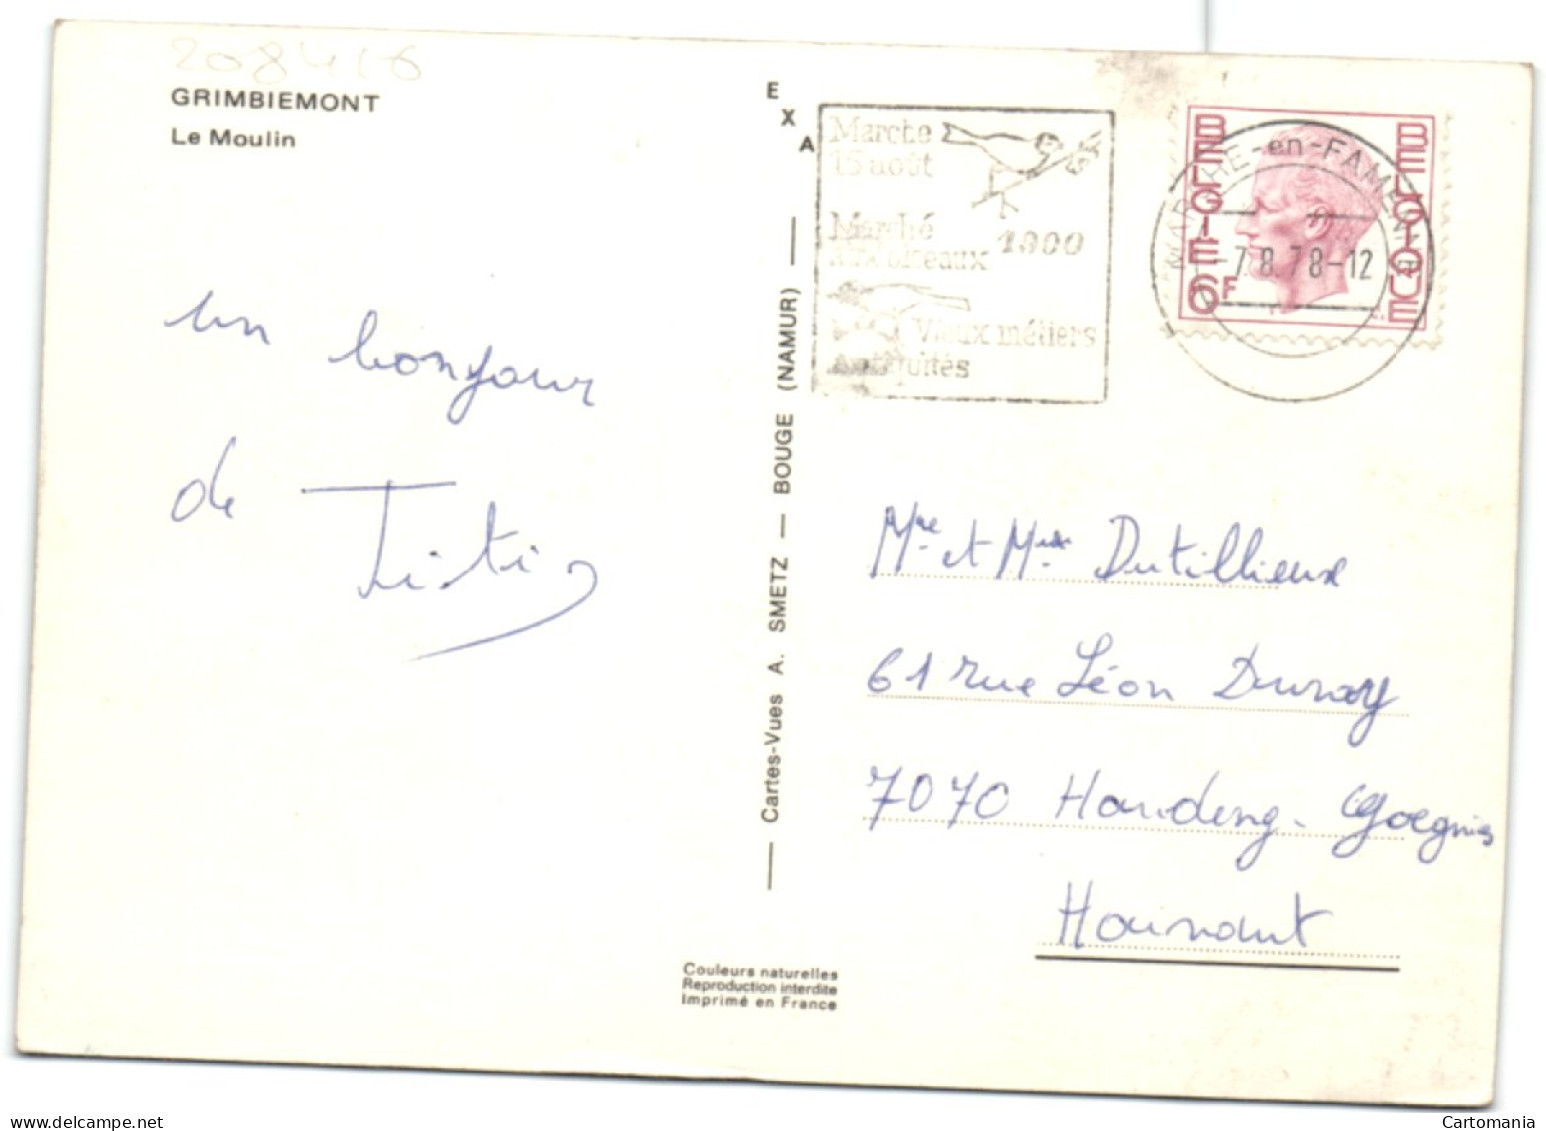 208416
GRIMBIEMONT
Le Moulin
un bonjour
de Titi
EXA
Cartes-Vues A. SMETZ — BOUGE (NAMUR)
Couleurs naturelles
Reproduction interdite
Imprimé en France
Marche
15 août
Marché 1900
aux oiseaux
Vieux métiers
Antiquités
MARCHE-en-FAMENNE
-7.8.78-12
BELGIE 6F
BELGIQUE
Mr et Mme Dutillieux
61 rue Léon Duray
7070 Houdeng-Goegnies
Hainaut
delcampe.net
Cartomania